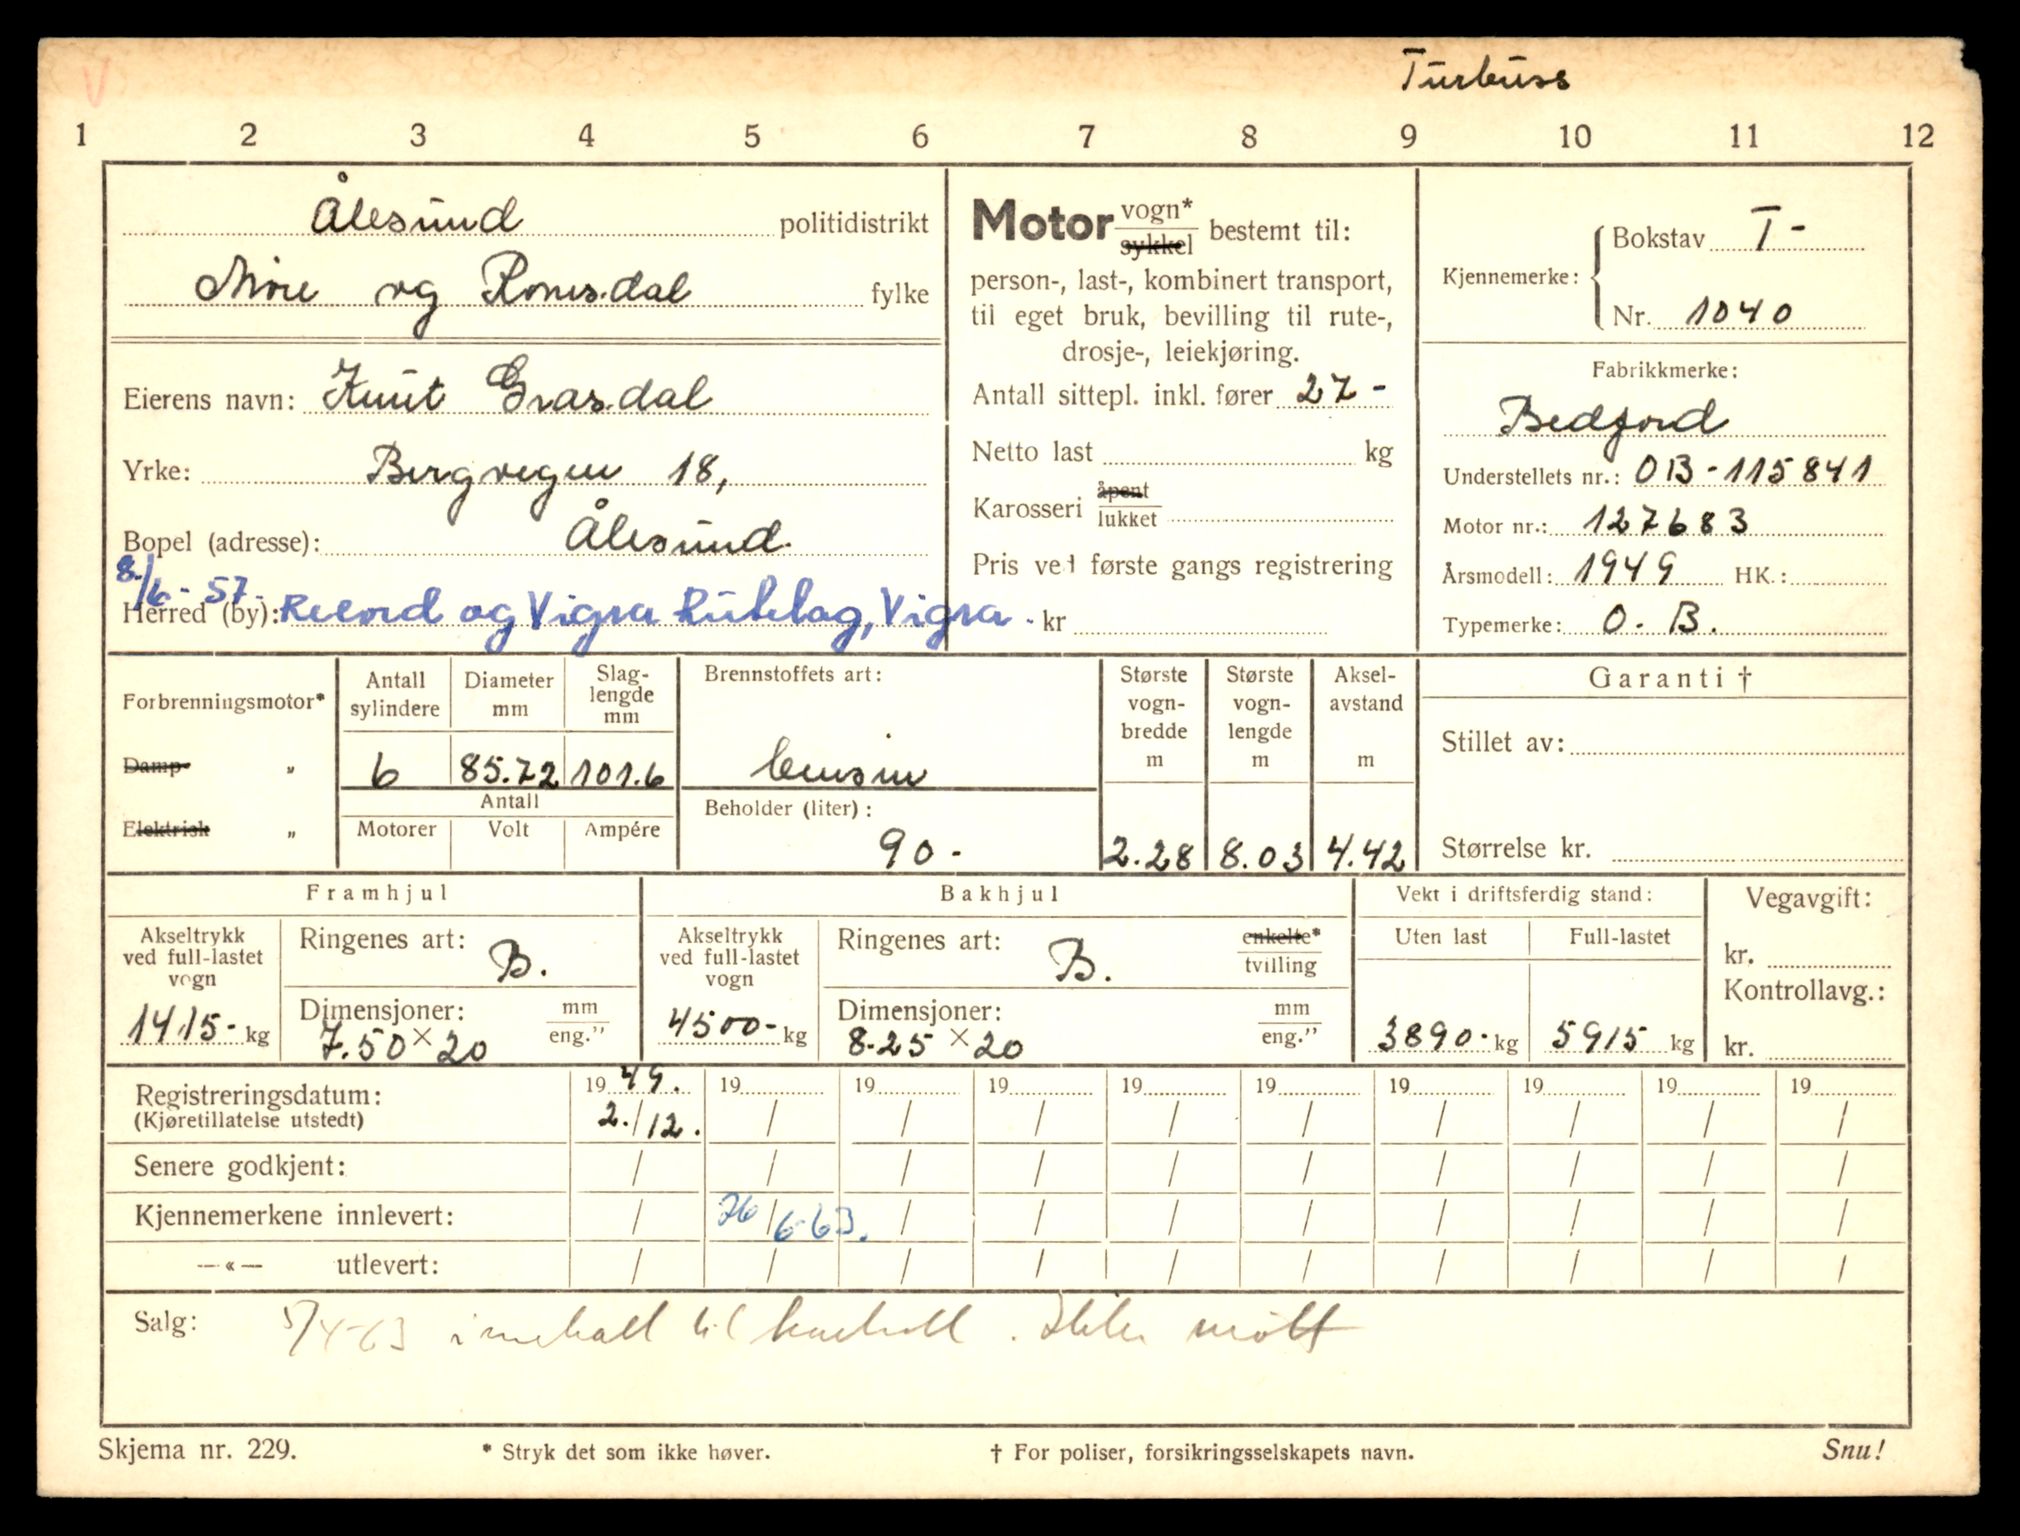 V
Turbuss
1 2 3 4 5 6 7 8 9 10 11 12
Ålesund politidistrikt
Møre og Romsdal fylke
Eierens navn: Knut Grasdal
Yrke: Bergvegen 18,
Bopel (adresse): Ålesund.
8./6 - 57.
Herred (by): Record og Vigra Rutelag, Vigra.
Motor vogn* / sykkel bestemt til:
person-, last-, kombinert transport,
til eget bruk, bevilling til rute-,
drosje-, leiekjøring.
Antall sittepl. inkl. fører 27 -
Netto last kg
Karosseri åpent / lukket
Pris ved første gangs registrering
kr
Kjennemerke: Bokstav T -
Nr. 1040
Fabrikkmerke:
Bedford
Understellets nr.: OB - 115841
Motor nr.: 127683
Årsmodell: 1949 HK.:
Typemerke: O. B.
Forbrenningsmotor*
Damp- „
Elektrisk „
Antall sylindere
6
Diameter mm
85.72
Slag-lengde mm
101.6
Antall
Motorer Volt Ampére
Brennstoffets art:
bensin
Beholder (liter):
90 -
Største vogn-bredde m
2.28
Største vogn-lengde m
8.03
Aksel-avstand m
4.42
Garanti †
Stillet av:
Størrelse kr.
Framhjul
Akseltrykk ved full-lastet vogn
1415 - kg
Ringenes art: B.
Dimensjoner: mm / eng.”
7.50 × 20
Bakhjul
Akseltrykk ved full-lastet vogn
4500 - kg
Ringenes art: B. enkelte* / tvilling
Dimensjoner: mm / eng.”
8.25 × 20
Vekt i driftsferdig stand:
Uten last Full-lastet
3890 - kg 5915 kg
Vegavgift:
kr.
Kontrollavg.:
kr.
Registreringsdatum: 19 49. 19 19 19 19 19 19 19 19 19
(Kjøretillatelse utstedt) 2./12. / / / / / / / / /
Senere godkjent: / / / / / / / / / /
Kjennemerkene innlevert: / 26/6-63. / / / / / / / /
—«— utlevert: / / / / / / / / / /
Salg: 5/4-63 innkalt til kontroll. Ikke møtt
Skjema nr. 229. * Stryk det som ikke høver. † For poliser, forsikringsselskapets navn. Snu!